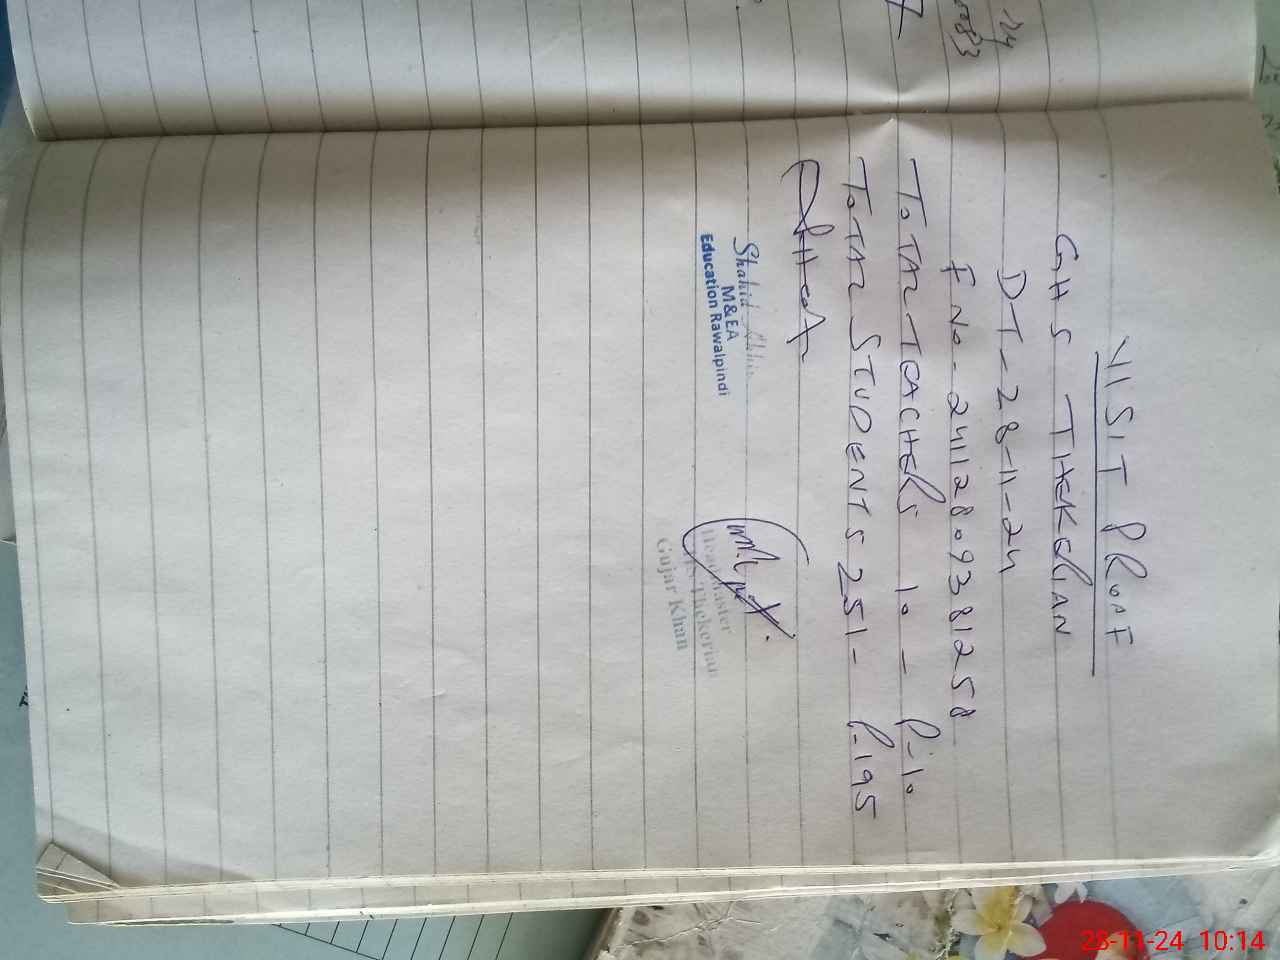 VISIT PROOF
GHS THEKERIAN
DT-28-11-24
F No- 24112809381258
TOTAL TEACHERS 10 - P-10
TOTAL STUDENTS 251- P-195
Shahid
M&EA
Education Rawalpindi
Headmaster
Thekerian
Gujar Khan
28-11-24 10:14